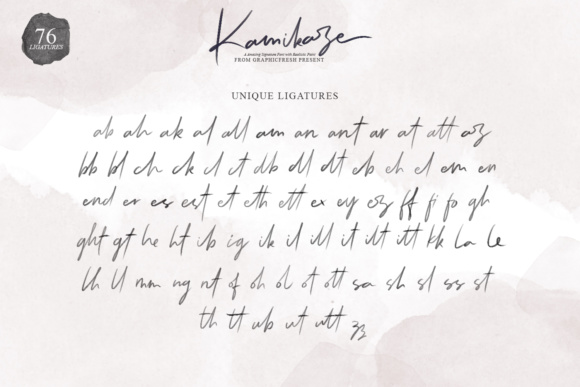 76
LIGATURES
Kamikaze
A Amazing Signature Font with Realistic Paint
FROM GRAPHICFRESH PRESENT
UNIQUE LIGATURES
ab ah ak al all am an ant ar at att az
bb bl ch ck cl ct db dll dt eb eh el em en
end er es est et eth ett ex ey ez ff fi fo gh
ght gt he ht ib ig ik il ill it ilt itt kk la le
lh ll mm ng nt of oh ol ot ott sa sh sl ss st
th tt ub ut utt zz